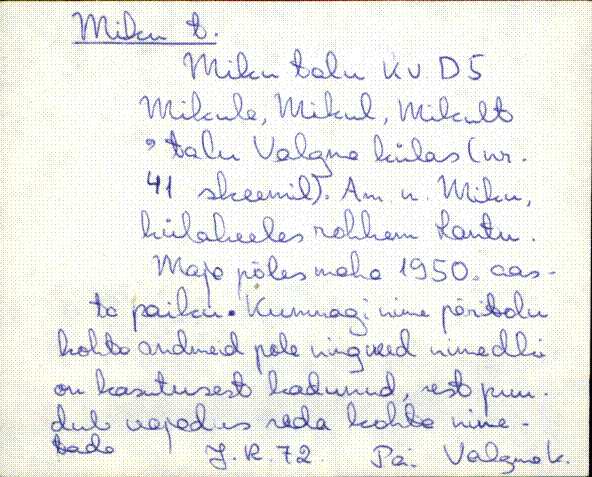 Miku t.
Miku talu KV D5
Mikule, Mikul, Mikult
, talu Valgma külas (nr.
41 skeemil). Am. n. Miku,
külakeeles rohkem Lantu.
Maja põles maha 1950. aas-
ta paiku. Kummagi nime päritolu
kohta andmeid pole ning need nimedki
on kasutusest kadunud, sest puu-
dub vajadus seda kohta nime-
tada J.R. 72. Pai. Valgma k.